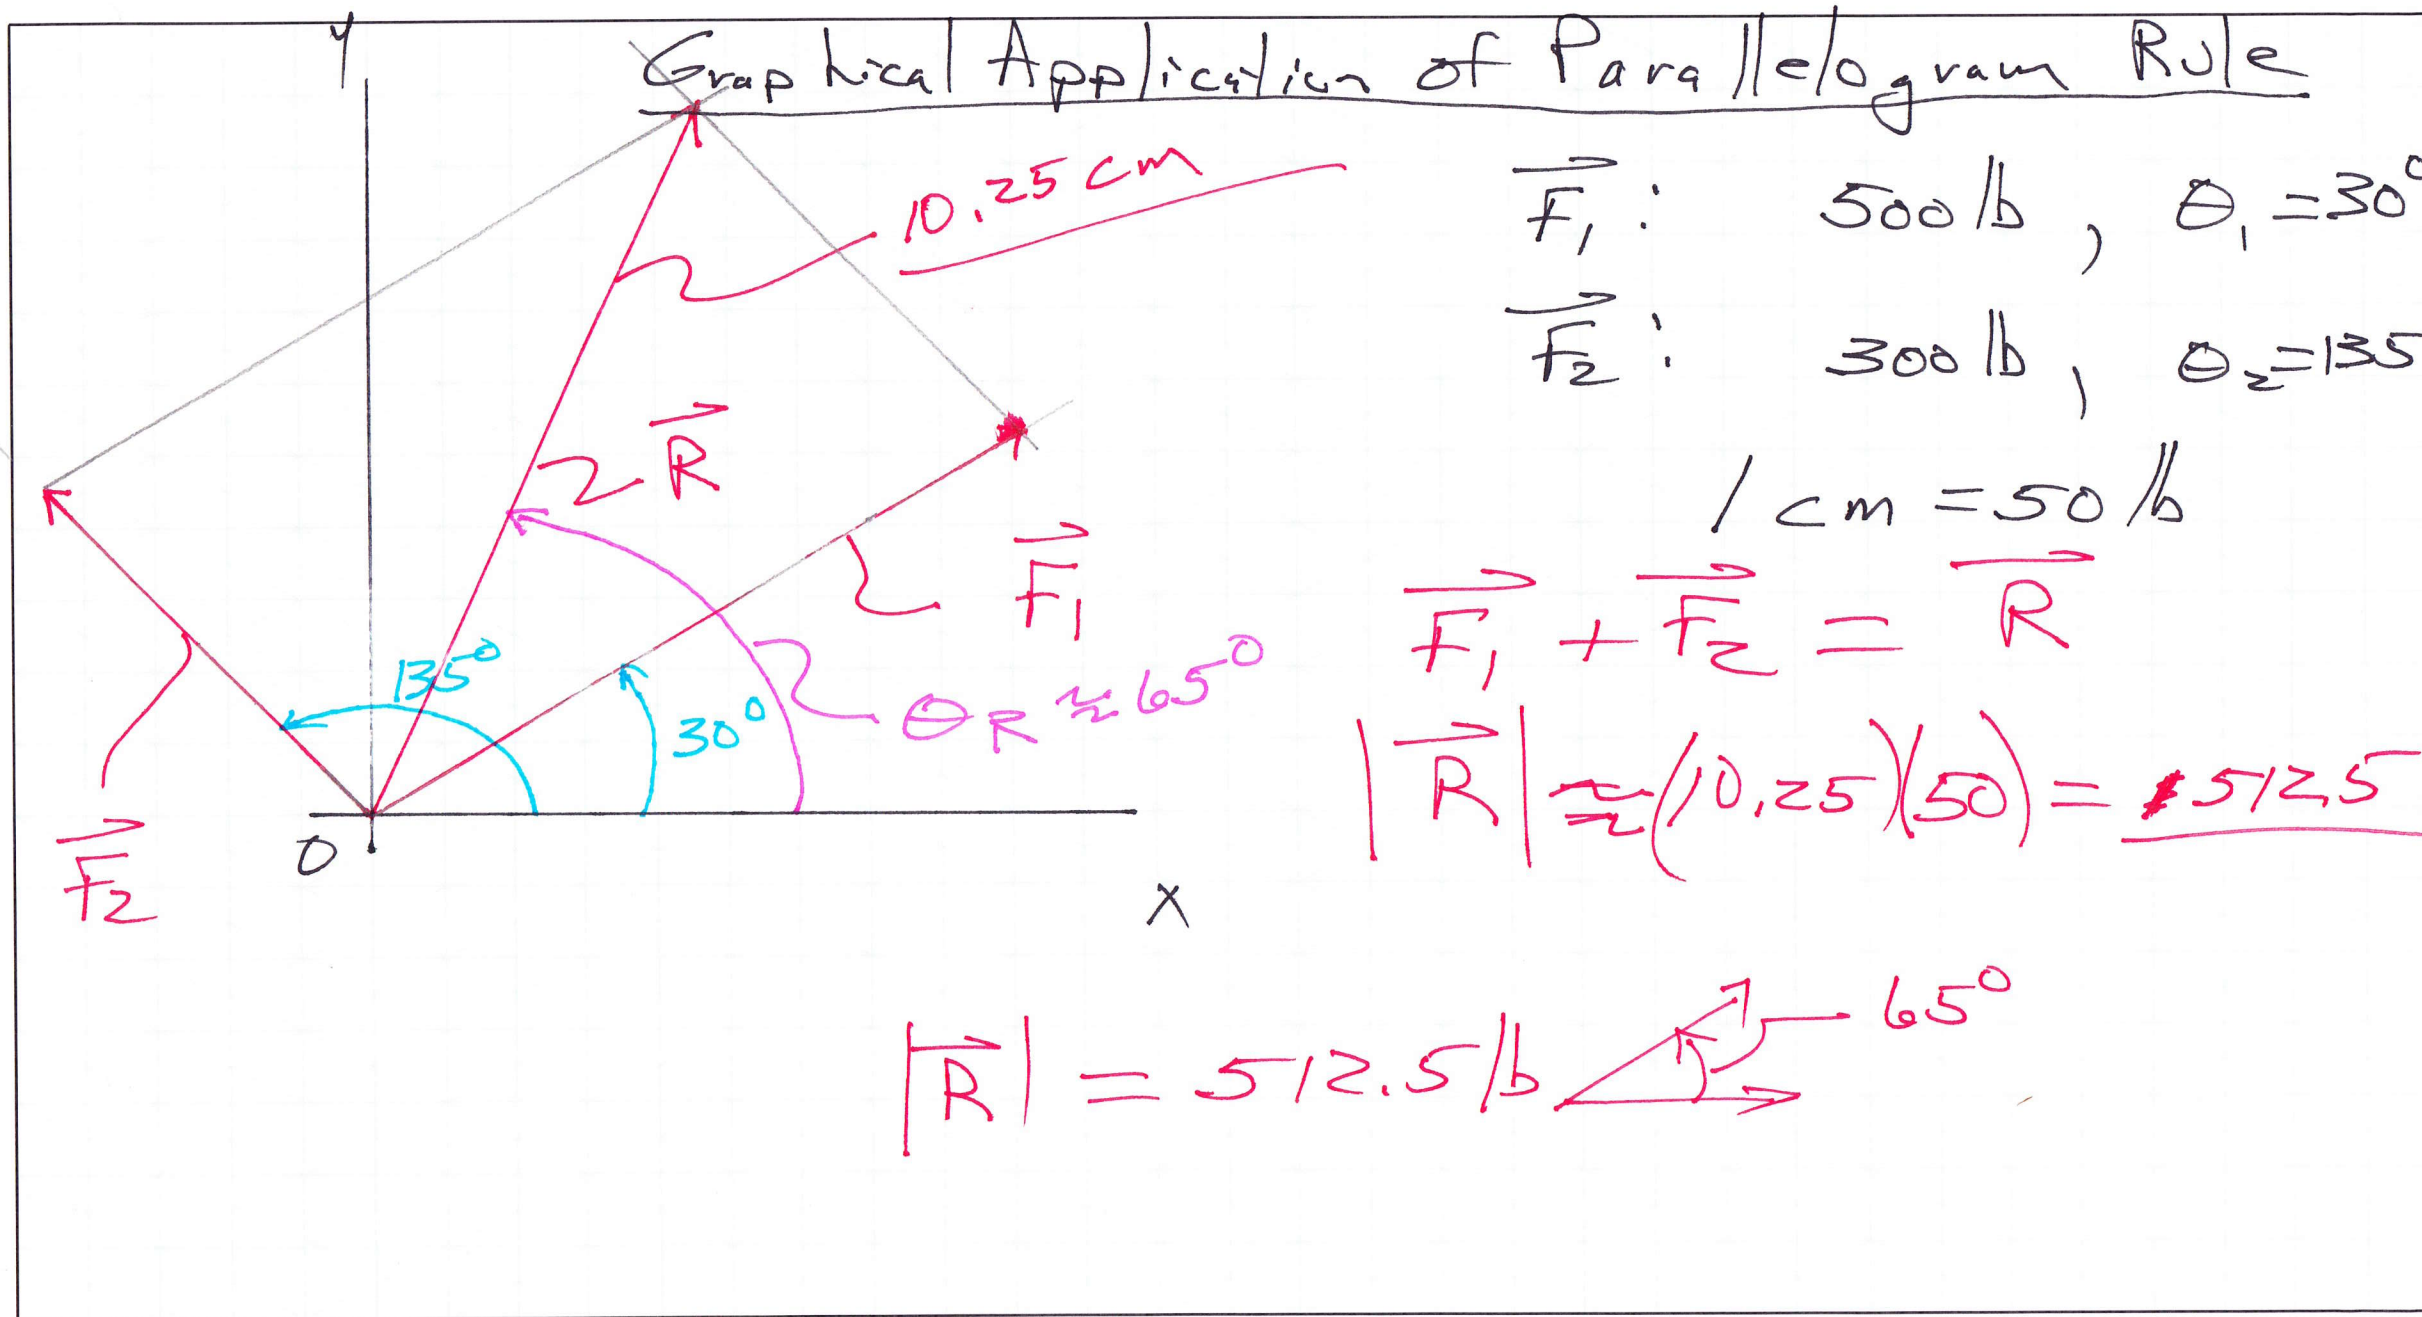 Y
Graphical Application of Parallelogram Rule
10.25 cm
F₁ : 500 lb , θ₁ = 30°
F₂ : 300 lb , θ₂ = 135
1 cm = 50 lb
R
F₁
F₁ + F₂ = R
135°
30°
θR ≈ 65°
|R| ≈ (10.25)(50) = 512.5
F₂
O
X
|R| = 512.5 lb 65°